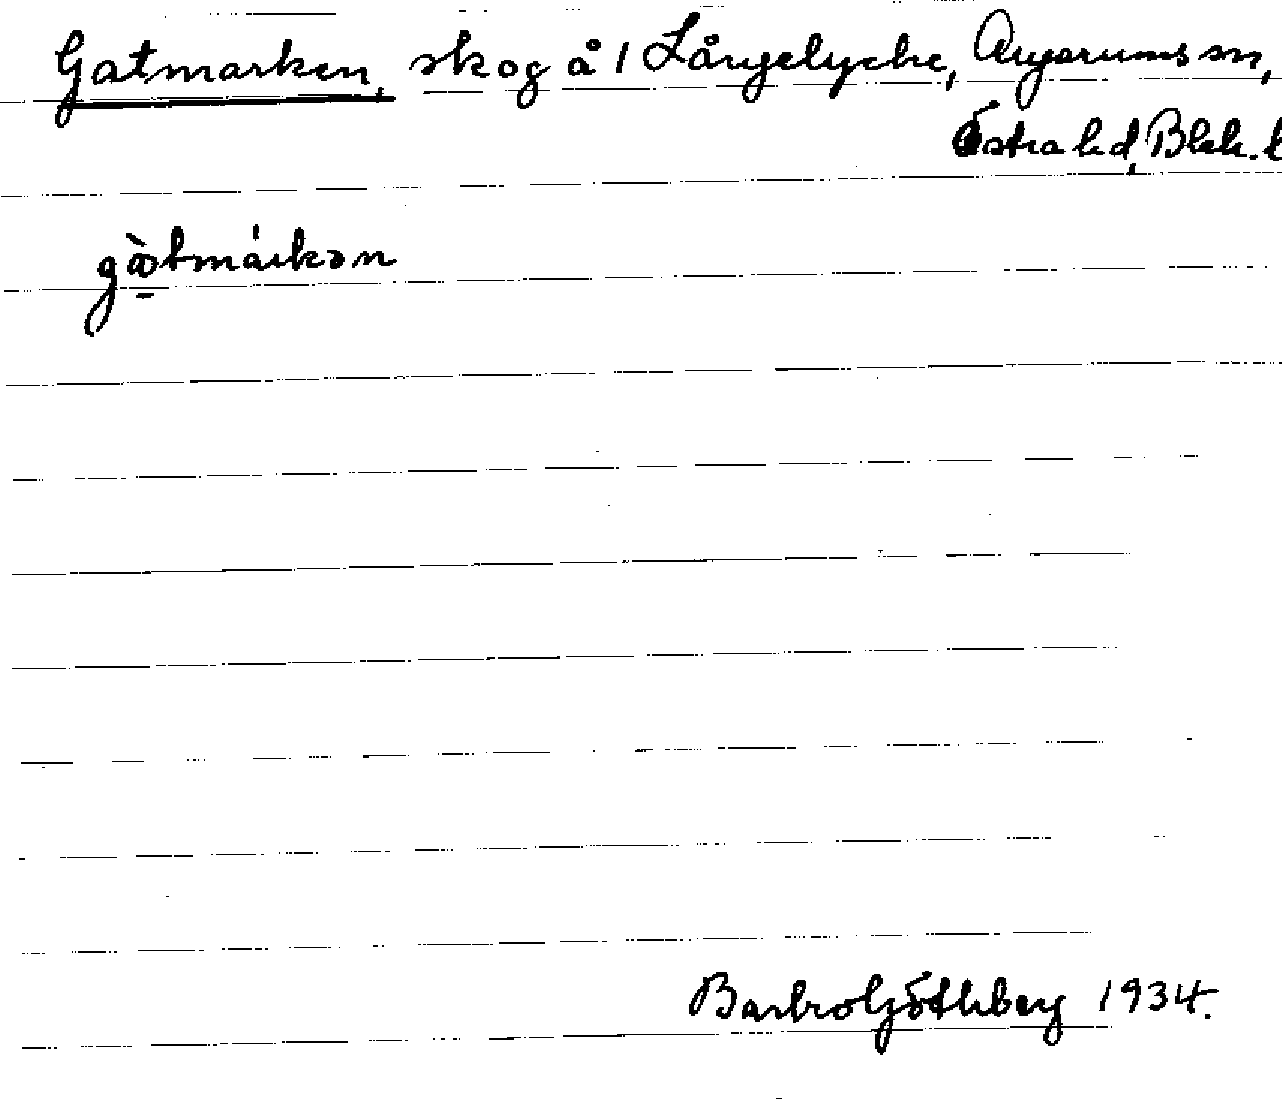 Gatmarken, skog å 1 Långelycke, Augerums sn,
Östra hd, Blek. l
gàtmárkən
Barbro Götheberg 1934.